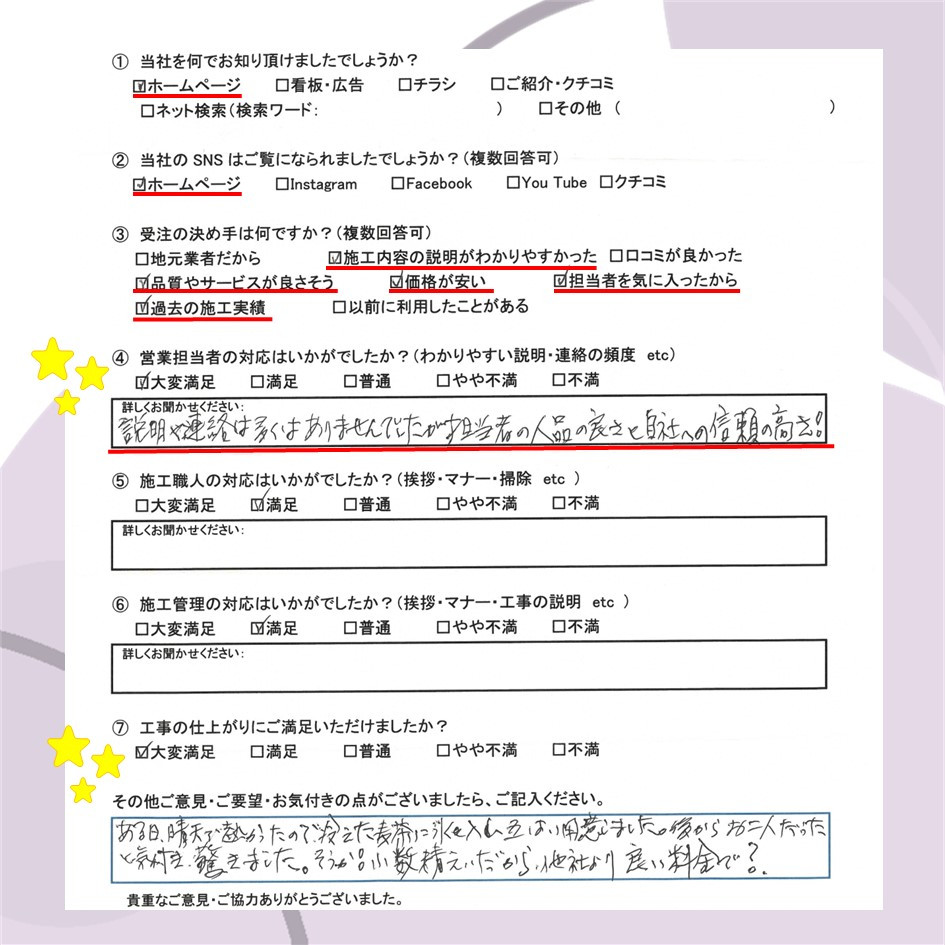 ① 当社を何でお知り頂けましたでしょうか？
☑ホームページ □看板・広告 □チラシ □ご紹介・クチコミ
□ネット検索（検索ワード： ） □その他 （ ）
② 当社の SNS はご覧になられましたでしょうか？（複数回答可）
☑ホームページ □Instagram □Facebook □You Tube □クチコミ
③ 受注の決め手は何ですか？（複数回答可）
□地元業者だから ☑施工内容の説明がわかりやすかった □口コミが良かった
☑品質やサービスが良さそう ☑価格が安い ☑担当者を気に入ったから
☑過去の施工実績 □以前に利用したことがある
④ 営業担当者の対応はいかがでしたか？（わかりやすい説明・連絡の頻度 etc）
☑大変満足 □満足 □普通 □やや不満 □不満
詳しくお聞かせください：
説明や連絡は多くはありませんでしたが担当者の人品の良さと自社への信頼の高さ！
⑤ 施工職人の対応はいかがでしたか？（挨拶・マナー・掃除 etc ）
□大変満足 ☑満足 □普通 □やや不満 □不満
詳しくお聞かせください：
⑥ 施工管理の対応はいかがでしたか？（挨拶・マナー・工事の説明 etc ）
□大変満足 ☑満足 □普通 □やや不満 □不満
詳しくお聞かせください：
⑦ 工事の仕上がりにご満足いただけましたか？
☑大変満足 □満足 □普通 □やや不満 □不満
その他ご意見・ご要望・お気付きの点がございましたら、ご記入ください。
ある日、晴天で熱かったので冷えた麦茶に氷を入れ五はい用意しました。後からお二人だった
と気付き、驚きました。そうか！少数精えいだから、他社より良い料金で？
貴重なご意見・ご協力ありがとうございました。